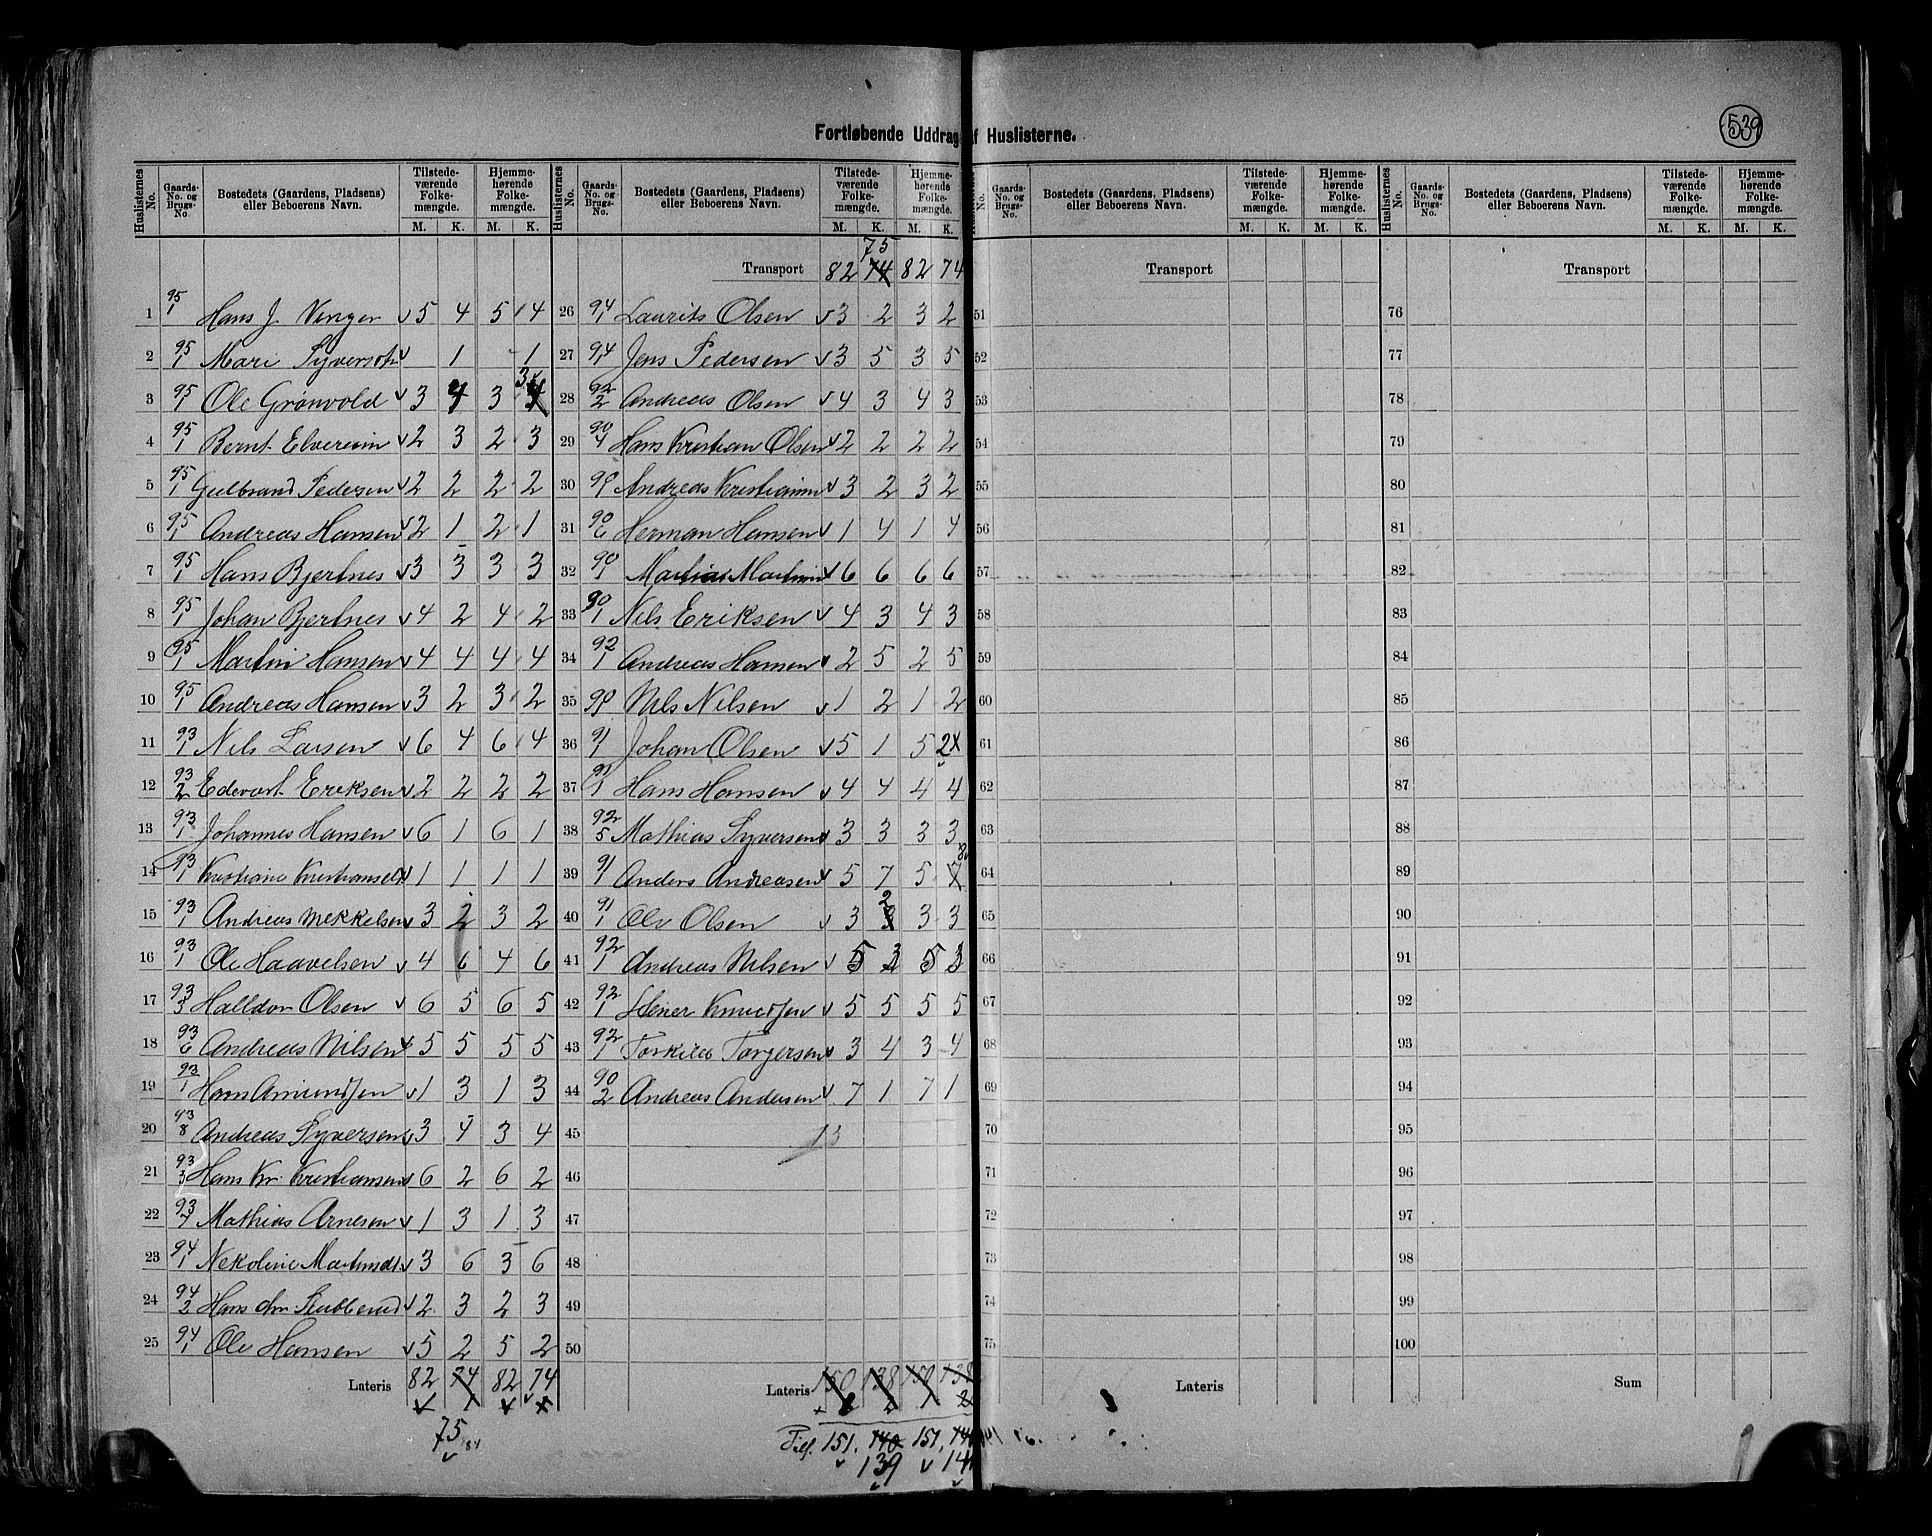 539
Fortløbende Uddrag af Huslisterne.
Huslisternes No. Gaards-No. og Brugs-No. Bostedets (Gaardens, Pladsens) eller Beboerens Navn. Tilstedeværende Folkemængde. M. K. Hjemmehørende Folkemængde. M. K.
1 95/1 Hans J. Venger v 5 4 5 4
2 95/1 Mari v 1 1
3 95/1 Ole Grønvold v 3 4 3 4 3
4 95/1 Bernt v 2 3 2 3
5 95/1 Gulbrand Pedersen v 2 2 2 2
6 95/1 Andreas Hansen v 2 1 2 1
7 95/1 Hans Bjertnes v 3 3 3 3
8 95/1 Johan Bjertnes v 4 2 4 2
9 95/1 Martin Hansen v 4 4 4 4
10 95/1 Andreas Hansen v 3 2 3 2
11 93/1 Nils Larsen v 6 4 6 4
12 93/2 Edevart Eriksen v 2 2 2 2
13 93/1 Johannes Hansen v 6 1 6 1
14 93/1 v 1 1 1 1
15 93/1 Andreas Mekkelsen v 3 2 3 2
16 93/1 Ole Haavelsen v 4 6 4 6
17 93/5 Halldor Olsen v 6 5 6 5
18 93/6 Andreas Nilsen v 5 5 5 5
19 93/1 Hans Amundsen v 1 3 1 3
20 93/8 Andreas Syversen v 3 4 3 4
21 93/3 Hans Kr. Kristiansen v 6 2 6 2
22 93/7 Mathias Arnesen v 1 3 1 3
23 94/1 v 3 6 3 6
24 94/2 Hans Chr. Stubberud v 2 3 2 3
25 94/1 Ole Hansen v 5 2 5 2
Lateris 82 74 82 74
75
Huslisternes No. Gaards-No. og Brugs-No. Bostedets (Gaardens, Pladsens) eller Beboerens Navn. Tilstedeværende Folkemængde. M. K. Hjemmehørende Folkemængde. M. K.
75
Transport 82 74 82 74
26 94/1 Laurits Olsen v 3 2 3 2
27 94/1 Jens Pedersen v 3 5 3 5
28 92/2 Andreas Olsen v 4 3 4 3
29 90/4 Hans Kristian Olsen v 2 2 2 2
30 Andreas v 3 2 3 2
31 90/6 Herman Hansen v 1 4 1 4
32 90/1 v 6 6 6 6
33 90/1 Nils Eriksen v 4 3 4 3
34 92/1 Andreas Hansen v 2 5 2 5
35 Nils Nilsen v 1 2 1 2
36 91/1 Johan Olsen v 5 1 5 2 x
37 91/1 Hans Hansen v 4 4 4 4
38 92/5 Mathias Syversen v 3 3 3 3
39 91/1 Anders Andreasen v 5 7 5 7 8
40 91/1 Ole Olsen v 3 3 2 3 3
41 92/1 Andreas Nilsen v 5 3 5 3
42 92/1 Knudsen v 5 5 5 5
43 92/1 Torgersen v 3 4 3 4
44 90/2 Andreas Andersen v 7 1 7 1
45
46
47
48
49
50
Lateris 150 138 150 138
2 2
Tils. 151. 140 151. 141
139 141
Huslisternes No. Gaards-No. og Brugs-No. Bostedets (Gaardens, Pladsens) eller Beboerens Navn. Tilstedeværende Folkemængde. M. K. Hjemmehørende Folkemængde. M. K.
Transport
51
52
53
54
55
56
57
58
59
60
61
62
63
64
65
66
67
68
69
70
71
72
73
74
75
Lateris
Huslisternes No. Gaards-No. og Brugs-No. Bostedets (Gaardens, Pladsens) eller Beboerens Navn. Tilstedeværende Folkemængde. M. K. Hjemmehørende Folkemængde. M. K.
Transport
76
77
78
79
80
81
82
83
84
85
86
87
88
89
90
91
92
93
94
95
96
97
98
99
100
Sum